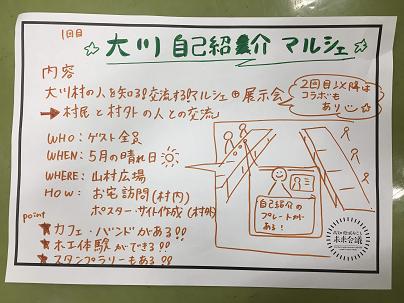 1回目
☆ 大川 自己紹介 マルシェ ☆
内容
大川村の人を知る!交流する!マルシェ⊕展示会
→村民と村外の人との交流」
2回目以降は
コラボも
あり
WHO: ゲスト全員
WHEN: 5月の晴れ日
WHERE: 山村広場
HOW: お宅訪問(村内)
ポスター・サイト作成(村外)
point
★カフェ・バンドがある!!
★木工体験ができる!!
★スタンプラリーもある!!
自己紹介の
プレートが
ある!
未来会議